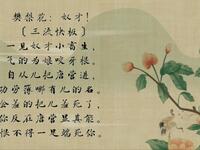 樊梨花：奴才！
〔三流快板〕
一见奴才小畜生，
气的为娘咬牙根。
自从儿把唐营进，
功劳簿哪有儿的名。
会盖的把儿盖死了，
你反在唐营显其能。
恨不得一足端死你。